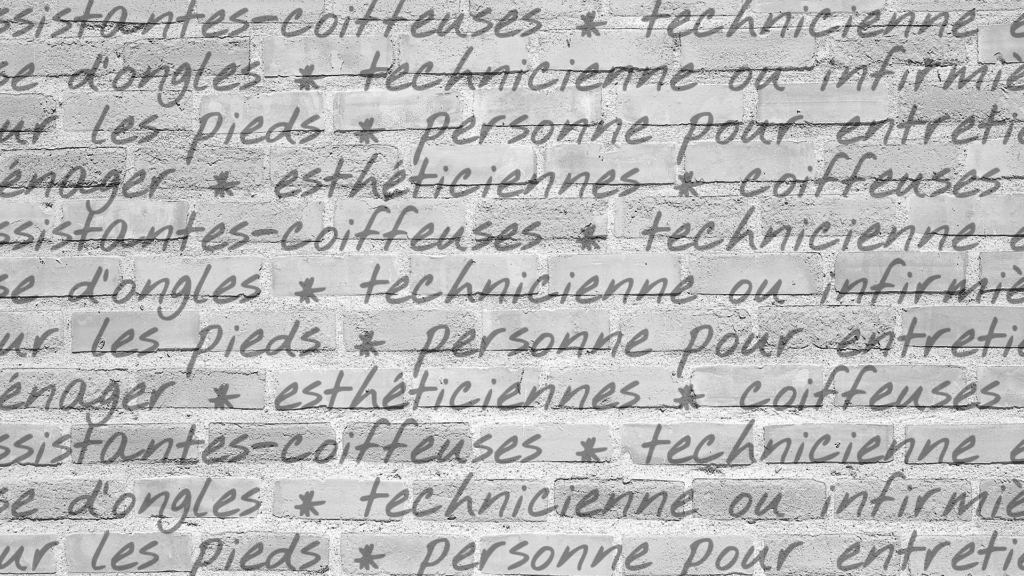 ssistantes-coiffeuses * technicienne e
se d'ongles * technicienne ou infirmiè
ur les pieds * personne pour entretie
énager * esthéticiennes * coiffeuses
ssistantes-coiffeuses * technicienne e
se d'ongles * technicienne ou infirmiè
ur les pieds * personne pour entretie
énager * esthéticiennes * coiffeuses
ssistantes-coiffeuses * technicienne e
se d'ongles * technicienne ou infirmiè
ur les pieds * personne pour entretie